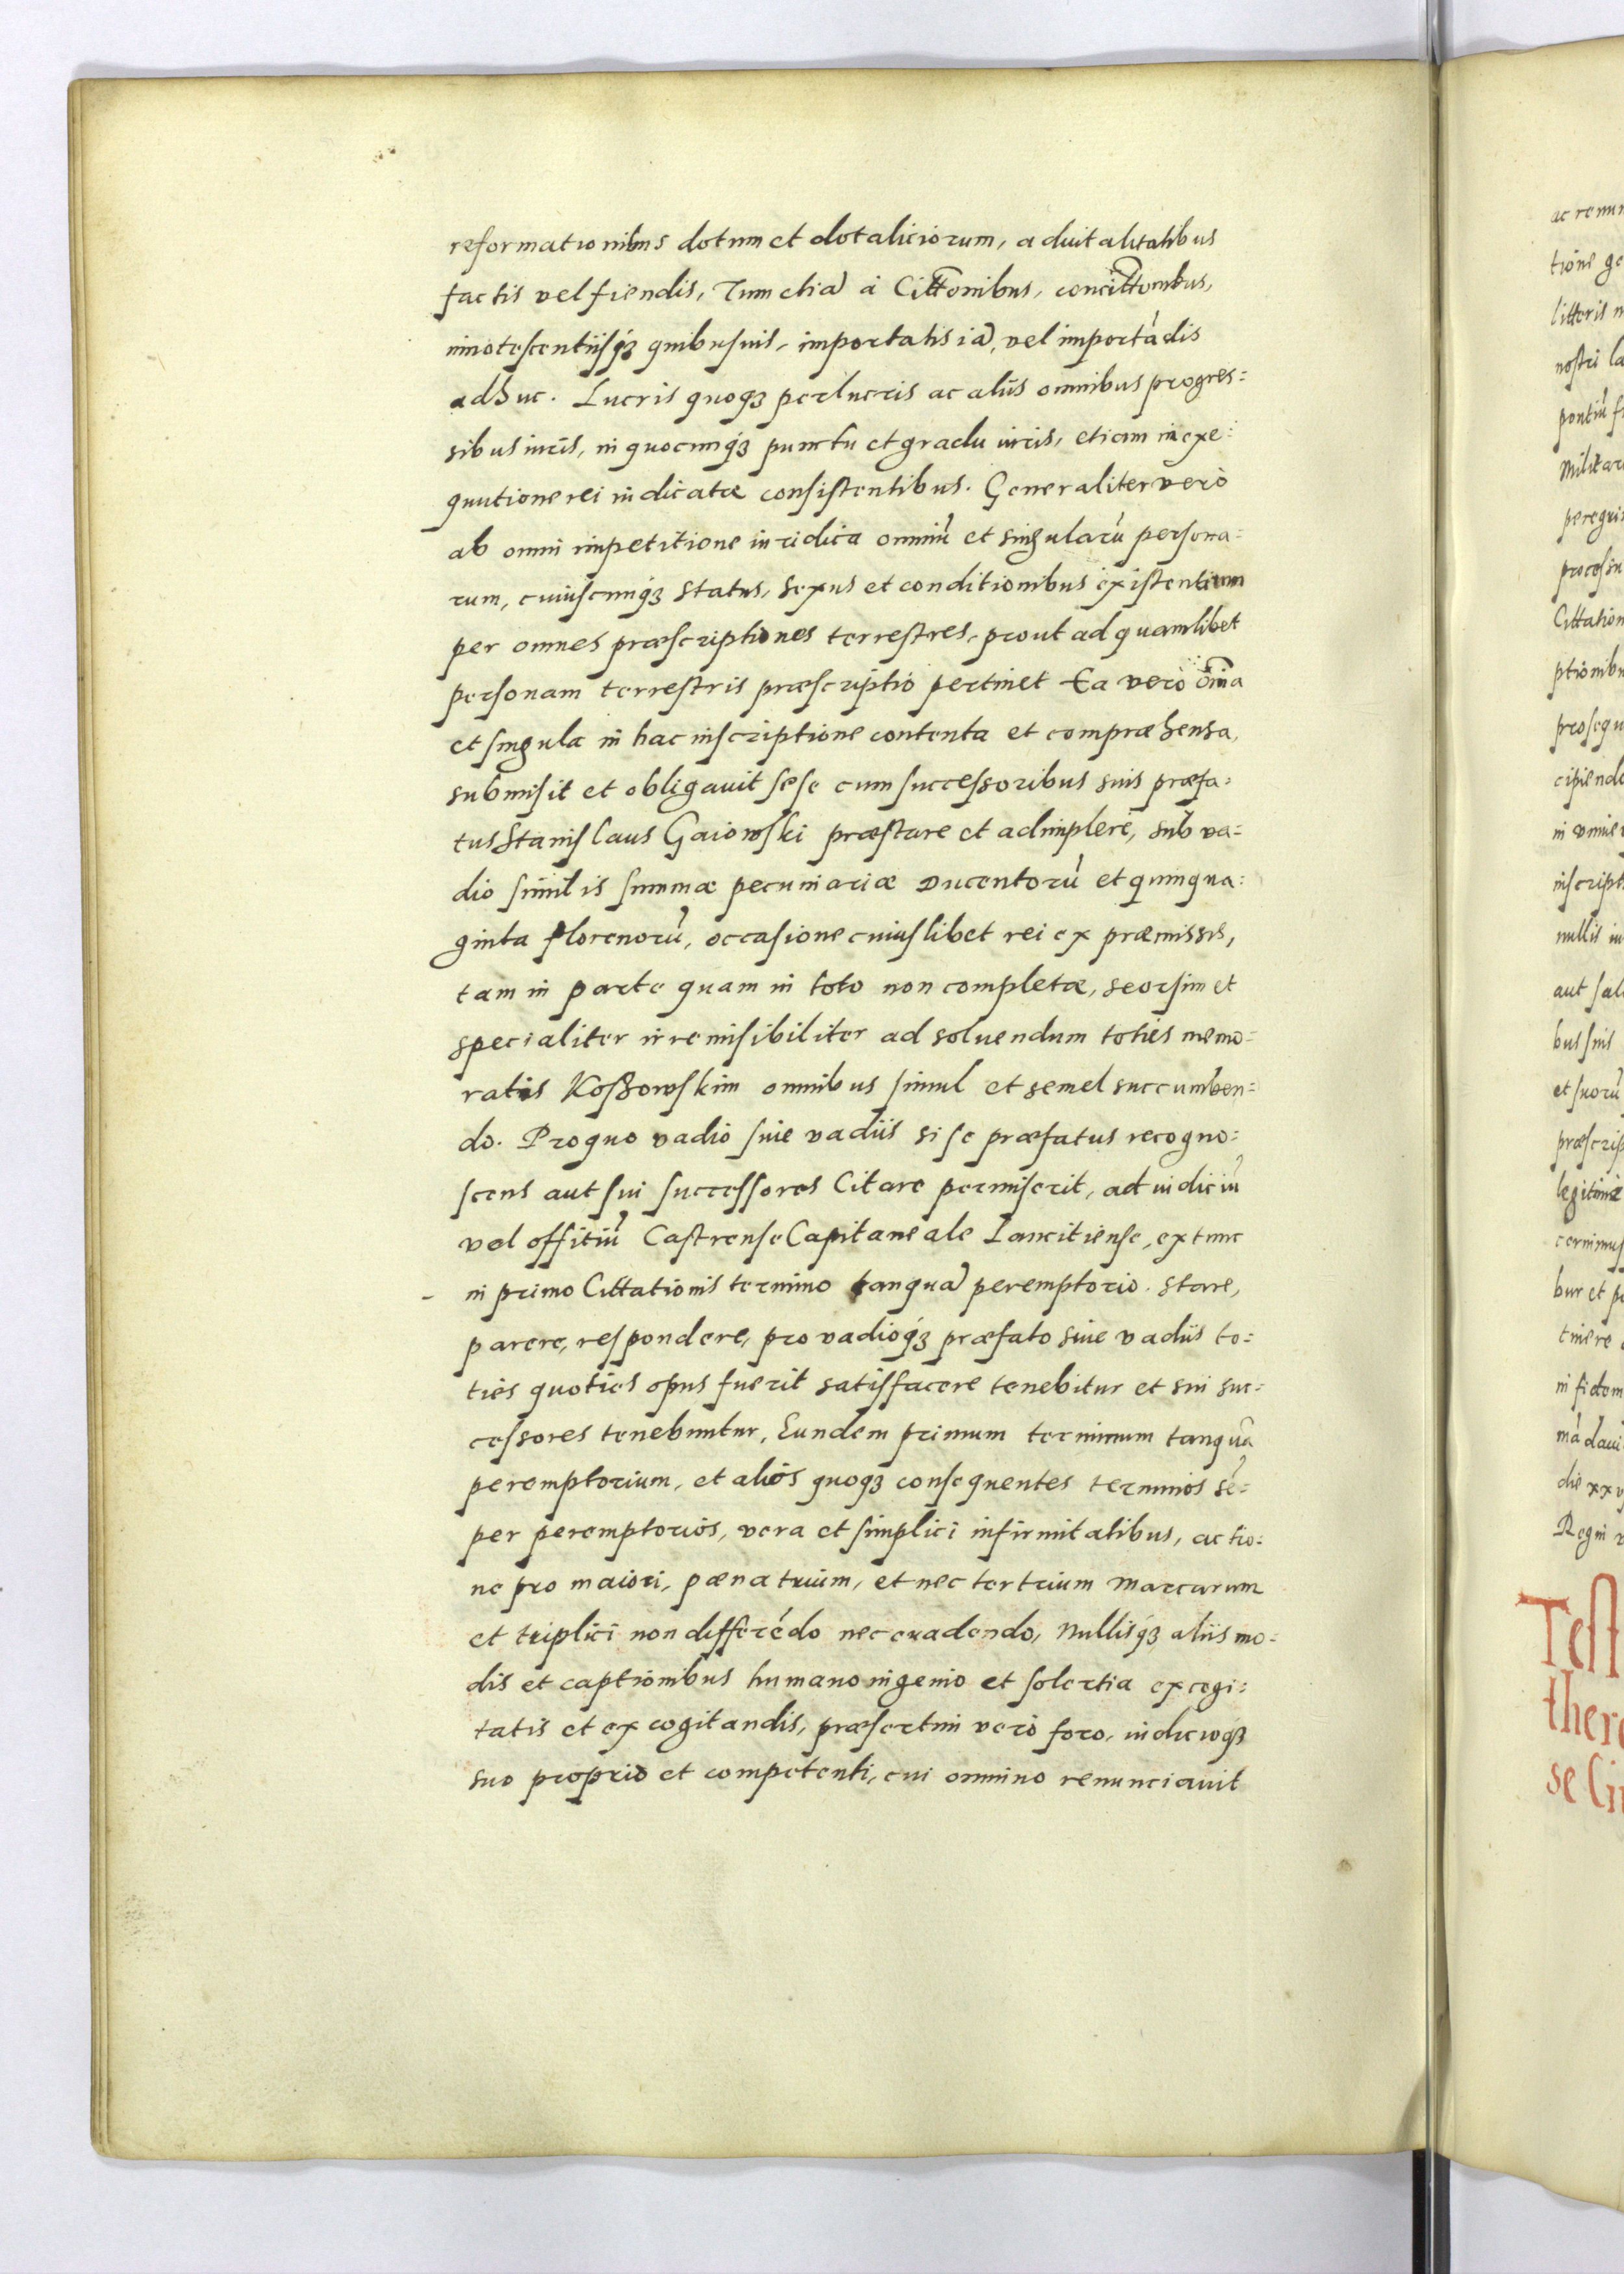 reformationibus dotum et dotaliciorum, aduitalitatibus
factis vel fiendis, Tum etiā à Citt͠onibus, concitt͠onibus,
innotescentiisq́ꝫ quibusuis, importatis iā, vel importādis
adhuc. Lucris quoqꝫ perlucris ac aliis omnibus progres=
sibus iuris, in quocunq́ꝫ punctu et gradu iuris, etiam in exe=
quutione rei iudicatæ consistentibus. Generaliter verò
ab omni impetitione iuridica omniū et singularū persona=
rum, cuiuscunq́ꝫ status, sexus et conditionibus existentium
per omnes præscriptiones terrestres, prout ad quamlibet
personam terrestris præscriptio pertinet Ea vero om̄ia
et singula in hac inscriptione contenta et compræhensa,
submisit et obligauit sese cum successoribus suis præfa=
tus Stanislaus Gaiowski præstare et adimplere, sub va=
dio similis summæ pecuniariæ Ducentorū et quinqua=
ginta florenorū, occasione cuiuslibet rei ex præmissis,
tam in parte quam in toto non completæ, seorsim et
specialiter irremisibiliter ad soluendum toties memo=
ratis Koszowskim omnibus simul et semel succumben=
do. Pro quo vadio siue vadiis si se præfatus recogno=
scens aut sui successores Citare permiserit, ad iudiciū
vel offitiū Castrense Capitaneale Lancitiense, extunc
in primo Cittationis termino tanquā peremptorio. stare,
parere, respondere, pro vadioq́ꝫ præfato siue vadiis to=
ties quoties opus fuerit satisfacere tenebitur et sui suc=
cessores tenebuntur, Eundem primum terminum tanquā
peremptorium, et alios quoqꝫ consequentes terminos sē=
per peremptorios, vera et simplici infirmitatibus, actio=
ne pro maiori, pæna trium, et nec ter trium marcarum
et triplici non differēdo nec euadendo, Nullisq́ꝫ aliis mo=
dis et captionibus humano ingenio et solertia excogi=
tatis et excogitandis, præsertim vero foro, iudicioqꝫ
suo proprio et competenti, cui omnino renunciauit
ac renun
tione ge
litteris
nostri la
pontiū
Militar
peregri
Cittation
ptionibu
prosequ
cipiendo
inscript
nullis iu
aut sal
bus suis
et suorū
præscrip
legitimè
bur et
tinere
in fidem
mādaui
die xxv
Regni
Test
there
se Ci